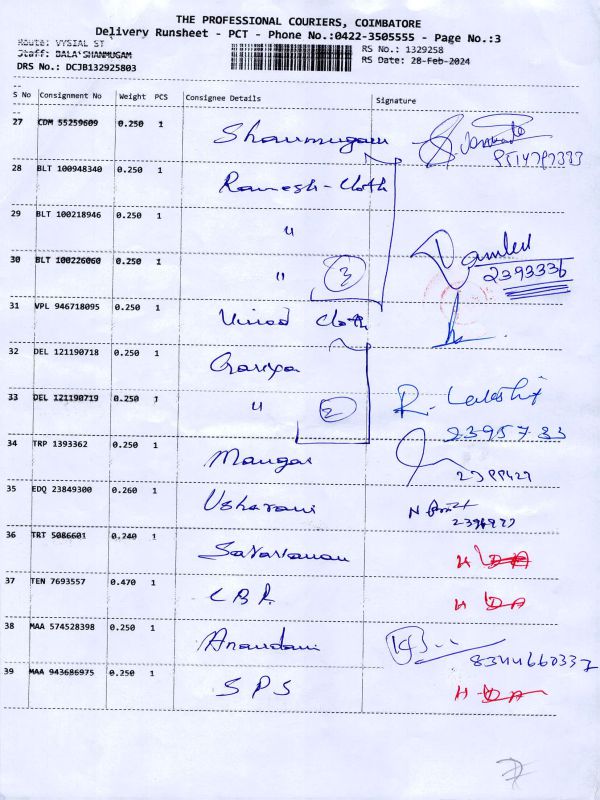 THE PROFESSIONAL COURIERS, COIMBATORE
Delivery Runsheet - PCT - Phone No.:0422-3505555 - Page No.:3
Route: VYSIAL ST
RS No.: 1329258
Staff: BALA SHANMUGAM
RS Date: 28-Feb-2024
DRS No.: DCJB132925803
S No Consignment No Weight PCS Consignee Details Signature
27 CDM 55259609 0.250 1 Shanmugam
28 BLT 100948340 0.250 1 Ramesh-Cloth
29 BLT 100218946 0.250 1 "
30 BLT 100226060 0.250 1 " 3
2393336
31 VPL 946718095 0.250 1 Vinod Cloth
32 DEL 121190718 0.250 1
33 DEL 121190719 0.250 1 " 2 R.
2395733
34 TRP 1393362 0.250 1 Mangal
35 EDQ 23849300 0.260 1 Usharani
36 TRT 5086601 0.240 1
37 TEN 7693557 0.470 1
38 MAA 574528398 0.250 1 Anandani
8344660337
39 MAA 943686975 0.250 1 S P S